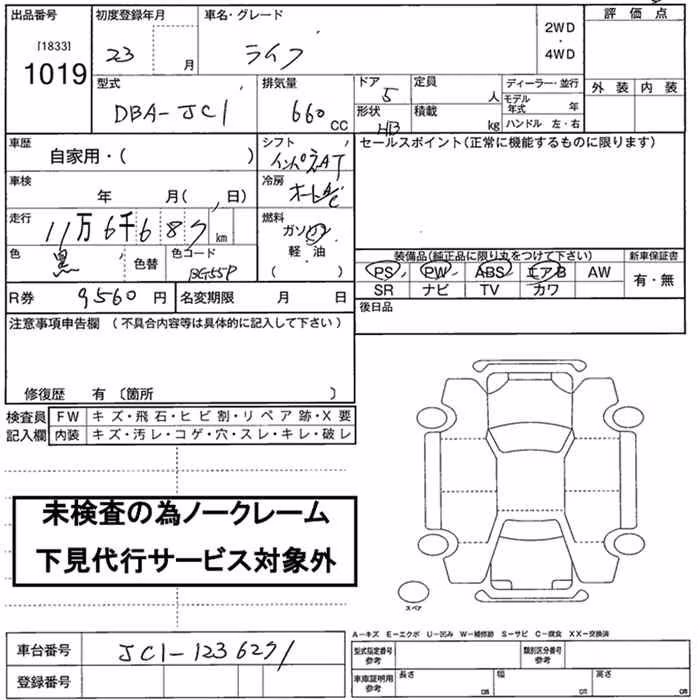 出品番号
[1833]
1019
初度登録年月
23 月
車名・グレード
ライフ
2WD
・
4WD
評価点
外装 内装
型式
DBA-JC1
排気量
660 CC
ドア 5
形状 HB
定員 人
積載 kg
ディーラー・並行
モデル年式 年
ハンドル 左・右
車歴 自家用・( )
シフト インパネAT
セールスポイント(正常に機能するものに限ります)
車検 年 月( 、 日)
冷房 オートA/C
走行 11万6千687 km
燃料 ガソリン
軽・油
( )
色 黒 色替 色コード BG55P
装備品(純正品に限り丸をつけて下さい) 新車保証書
PS PW ABS エアB AW
SR ナビ TV カワ
有・無
R券 9,560 円 名変期限 月 日
後日品
注意事項申告欄(不具合内容等は具体的に記入して下さい)
修復歴 有〔箇所 〕
検査員
記入欄
FW キズ・飛石・ヒビ割・リペア跡・X要
内装 キズ・汚レ・コゲ・穴・スレ・キレ・破レ
未検査の為ノークレーム
下見代行サービス対象外
スペア
A-キズ E-エクボ U-凹み W-補修跡 S-サビ C-腐食 XX-交換済
車台番号 JC1-1236291
登録番号
型式指定番号
参考
類別区分番号
参考
車庫証明用
参考
長さ cm 幅 cm 高さ cm